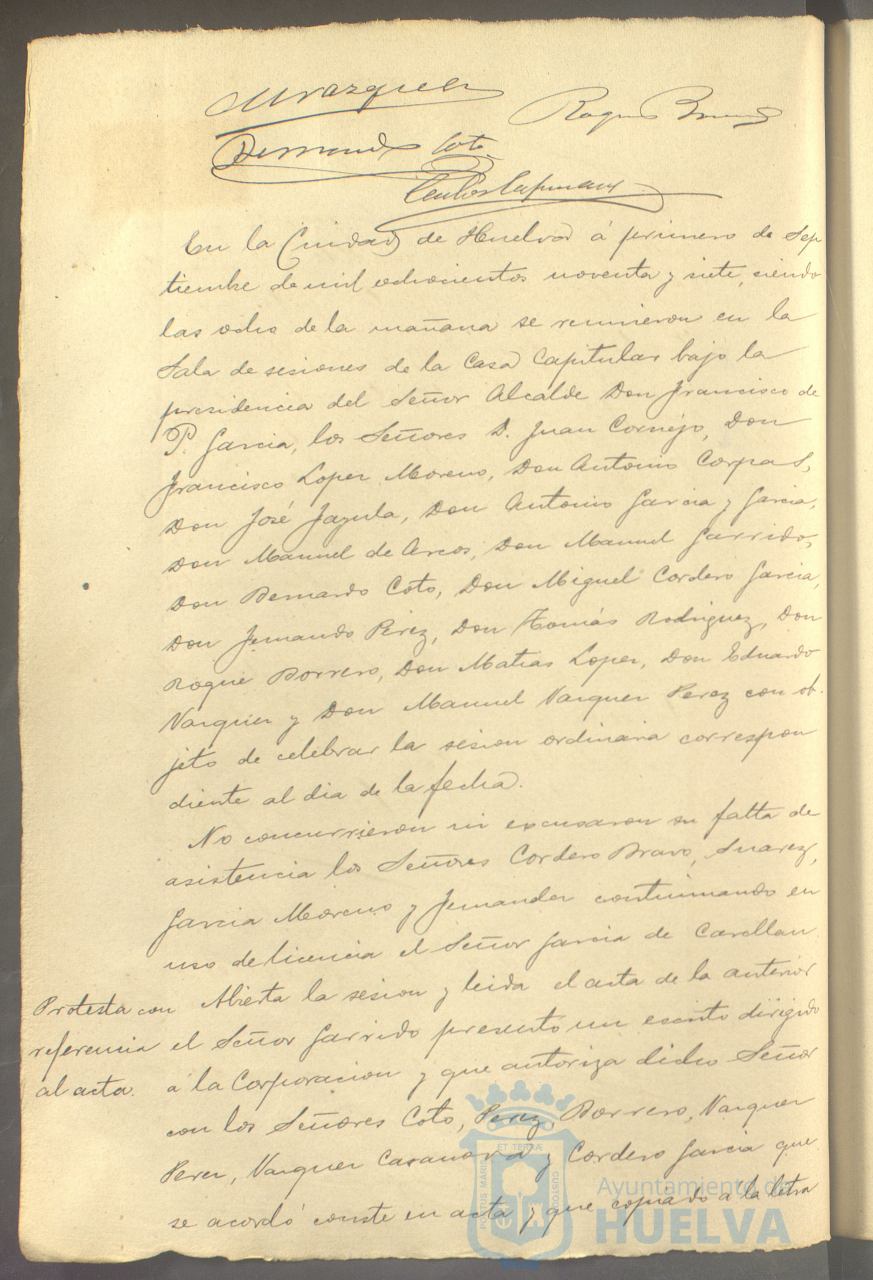 MVazquez
Roque Borrero
Bernardo Coto
En la Ciudad de Huelva á primero de Sep
tiembre de mil ochocientos noventa y siete, siendo
las ocho de la mañana se reunieron en la
Sala de sesiones de la Casa Capitular bajo la
presidencia del Señor Alcalde Don Francisco de
P. Garcia, los Señores D. Juan Cornejo, Don
Francisco Lopez Moreno, Don Antonio Corpas,
Don José Jazula, Don Antonio Garcia y Garcia,
Don Manuel de Arcos, Don Manuel Garrido,
Don Bernardo Coto, Don Miguel Cordero Garcia,
Don Fernando Pérez, Don Tomás Rodriguez, Don
Roque Borrero, Don Matias Lopez, Don Eduardo
Vazquez y Don Manuel Vazquez Perez con ob
jeto de celebrar la sesion ordinaria correspon
diente al dia de la fecha.
No concurrieron ni excusaron su falta de
asistencia los Señores Cordero Bravo, Suarez,
Garcia Moreno y Fernandez continuando en
uso de licencia el Señor Garcia de Castellan
Protesta con
referencia
al acta.
Abierta la sesion y leida el acta de la anterior
el Señor Garrido presentó un escrito dirigido
á la Corporacion y que autoriza dicho Señor
con los Señores Coto, Perez, Borrero, Vazquez
Perez, Vazquez Casanova y Cordero Garcia que
se acordó conste en acta y que copiado a la letra
PORTUS MARIS ET TERRÆ CUSTODIA
Ayuntamiento de
HUELVA